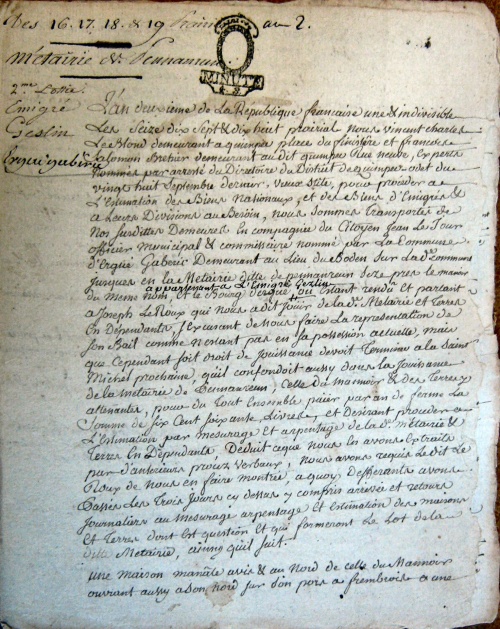 Des 16. 17. 18. & 19 prairial an 2.
Métairie de Pennanrun
MINUTE
2.me Lotie.
Emigré
Geslin
Ergué gaberic
L'an deuxieme de La Republique francaise une & indivisible
Les Seize dix Sept & dix huit prairial Nous vincent charles
Le Blond demeurant a quimper place du finistère et francois
Salomon Bretier demeurant au dit quimper Rue neuve, Experts
nommés par arresté du Directoire du District de quimper odet du
vingt huit Septembre dernier, vieux Stile, pour procéder a
L'Estimation des Biens Nationaux, et des Biens d'Emigrés &
a Leurs Divisions au Besoin, nous sommes transportés de
Nos susdittes Demeures En compagnie du Citoyen Jean Le Sour
officier Municipal & commissaire nommé par La Commune
d'Ergué Gaberic Demeurant au Lieu du Boden Sur La de. commune
Jusques en la Métairie ditte de pennanrun Size près le manoir
appartenant a L'Emigré Geslin
du meme nom, et le Bourg d'ergué, ou Estant rendu & parlant
a Joseph Le Roux qui nous a dit Jouir de la de. Métairie et Terres
En Dépendants, s'Excusant de nous faire La représentation de
Son Bail comme N'estant pas en sa possession actuelle, mais
que Cependant Soit droit de Jouissance devoit Terminer a la Saint
Michel prochaine, qu'il confondoit aussy dans La Jouissance
de la Métairie de Pennanrun, celle du Mannoir & des Terres y
attenantes, pour du Tout Ensemble païer par an de ferme La
Somme de Six Cent Soixante Livres, et Desirant procéder a
L'Estimation par mesurage et arpentage de la de. Métairie &
Terres En Dépendants, Deduit ce que Nous En avons Extraits
par d'anterieurs procès Verbaux, nous avons requis Le dit Le
Roux de Nous en faire montrée, a quoy Defferants avons
Passés Les Trois Jours cy dessus y compris arrivée et retours
Journaliers au Mesurage arpentage et Estimation des maisons
et Terres dont Est question et qui formeront Le Lot de la
ditte Métairie, ainsy qu'il suit.
Une Maison manale avis & au Nord de celle du Mannoir
ouvrant aussy a Son Nord sur Son pors a frembroise a une